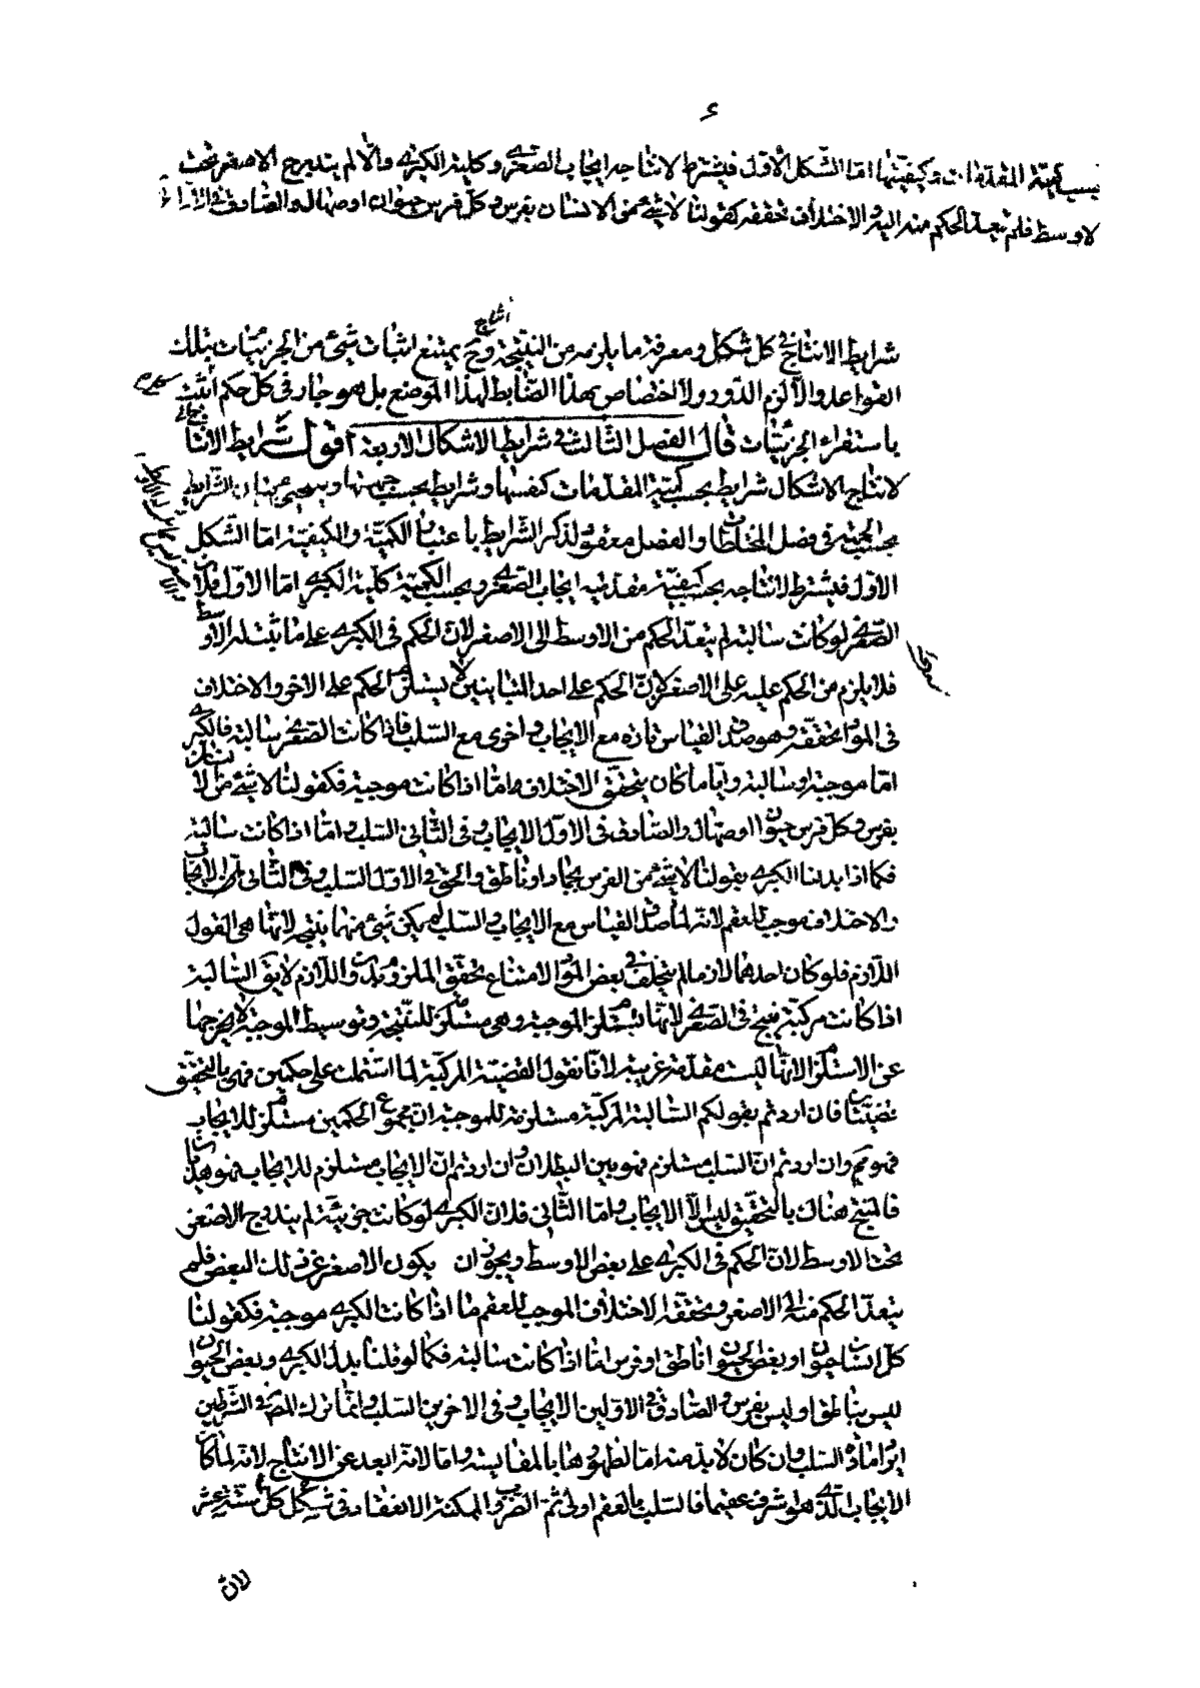 ء
بسبب كمية المقدمات وكيفيتها اما الشكل الأول فيشترط لانتاجه ايجاب الصغرى وكلية الكبرى والا لم يندرج الاصغر تحت
لاوسط فلم يتعد الحكم منه اليه والاختلاف تحققه كقولنا لا شئ من الانسان بفرس وكل فرس حيوان او صهال والصادق في
شرايط الانتاج في كل شكل ومعرفة ما يلزمه من النتيجة وح يمتنع اثبات شئ من الجزئيات بتلك
انتاج
القواعد والا لزم الدور ولا اختصاص بهذا الضابط لهذا الموضع بل هو جار في كل حكم اثبت
باستقراء الجزئيات قال الفصل الثالث في شرايط الاشكال الاربعة اقول شرايط الانتا
لانتاج الاشكال شرايط بحسب كمية المقدمات وكيفيتها وشرايط بحسب جهتها وسيجئ بيان الشرايط
بحسب الجهة في فصل المختلطات والفصل معقود لذكر الشرايط باعتبار الكمية والكيفية اما الشكل
الاول فيشترط لانتاجه بحسب كيفية مقدمتيه ايجاب الصغرى وبحسب الكمية كلية الكبرى اما الاول فلان
الصغرى لو كانت سالبة لم يتعد الحكم من الاوسط الى الاصغر لان الحكم في الكبرى على ما يثبت له الاوسط
فلا يلزم من الحكم عليه على الاصغر لان الحكم على احد المتباينين لا يستلزم الحكم على الاخر والاختلاف
في المواد يحققه وهو صدق القياس تارة مع الايجاب واخرى مع السلب فاذا كانت الصغرى سالبة فالكبرى
اما موجبة او سالبة واياما كان يتحقق الاختلاف اما اذا كانت موجبة فكقولنا لا شئ من الانسان
بفرس وكل فرس حيوان او صهال والصادق في الاول الايجاب وفي الثاني السلب واما اذا كانت سالبة
فكما اذا بدلنا الكبرى بقولنا لا شئ من الفرس بجماد او ناطق والحق في الاول السلب وفي الثاني الايجاب
والاختلاف موجب للعقم لانه لما صدق القياس مع الايجاب والسلب لم يكن شئ منهما بنتيجة لانها هي القول
اللازم فلو كان احدهما لازما لم يتخلف في بعض المواد لامتناع تحقق الملزوم بدون اللازم لا يق السالبة
اذا كانت مركبة ينتج في الصغرى لانها تستلزم الموجبة وهي مستلزمة للنتيجة وتوسيط الموجبة لا يخرجها
عن الاستلزام لانها ليست مقدمة غريبة لانا نقول القضية المركبة لما اشتملت على حكمين فهي بالتحقيق
قضيتان فان اردتم بقولكم السالبة المركبة مستلزمة للموجبة ان مجموع الحكمين مستلزم للايجاب
فهو مم وان اردتم ان السلب مستلزم فهو بين البطلان وان اردتم ان الايجاب مستلزم للايجاب فهو
فالمنتج هناك بالتحقيق ليس الا الايجاب واما الثاني فلان الكبرى لو كانت جزئية لم يندرج الاصغر
تحت الاوسط لان الحكم في الكبرى على بعض الاوسط ويجوز ان يكون الاصغر غير ذلك البعض فلم
يتعد الحكم منه الى الاصغر ويحققه الاختلاف الموجب للعقم اما اذا كانت الكبرى موجبة فكقولنا
كل انسان حيوان او بعض الحيوان ناطق او فرس اما اذا كانت سالبة فكما لو قلنا بدل الكبرى وبعض الحيوان
ليس بناطق او ليس بفرس والصادق في الاولين الايجاب وفي الاخرين السلب وانما ترك المص في الشرطين
ايراد مادة السلب وان كان لا بد منه اما لظهورها بالمقايسة واما لانه ابعد عن الانتاج لانه لما كان
الايجاب الذي هو اشرف عقيما فالسلب بالعقم اولى ثم الضروب الممكنة الانعقاد في كل شكل ستة عشر
لان